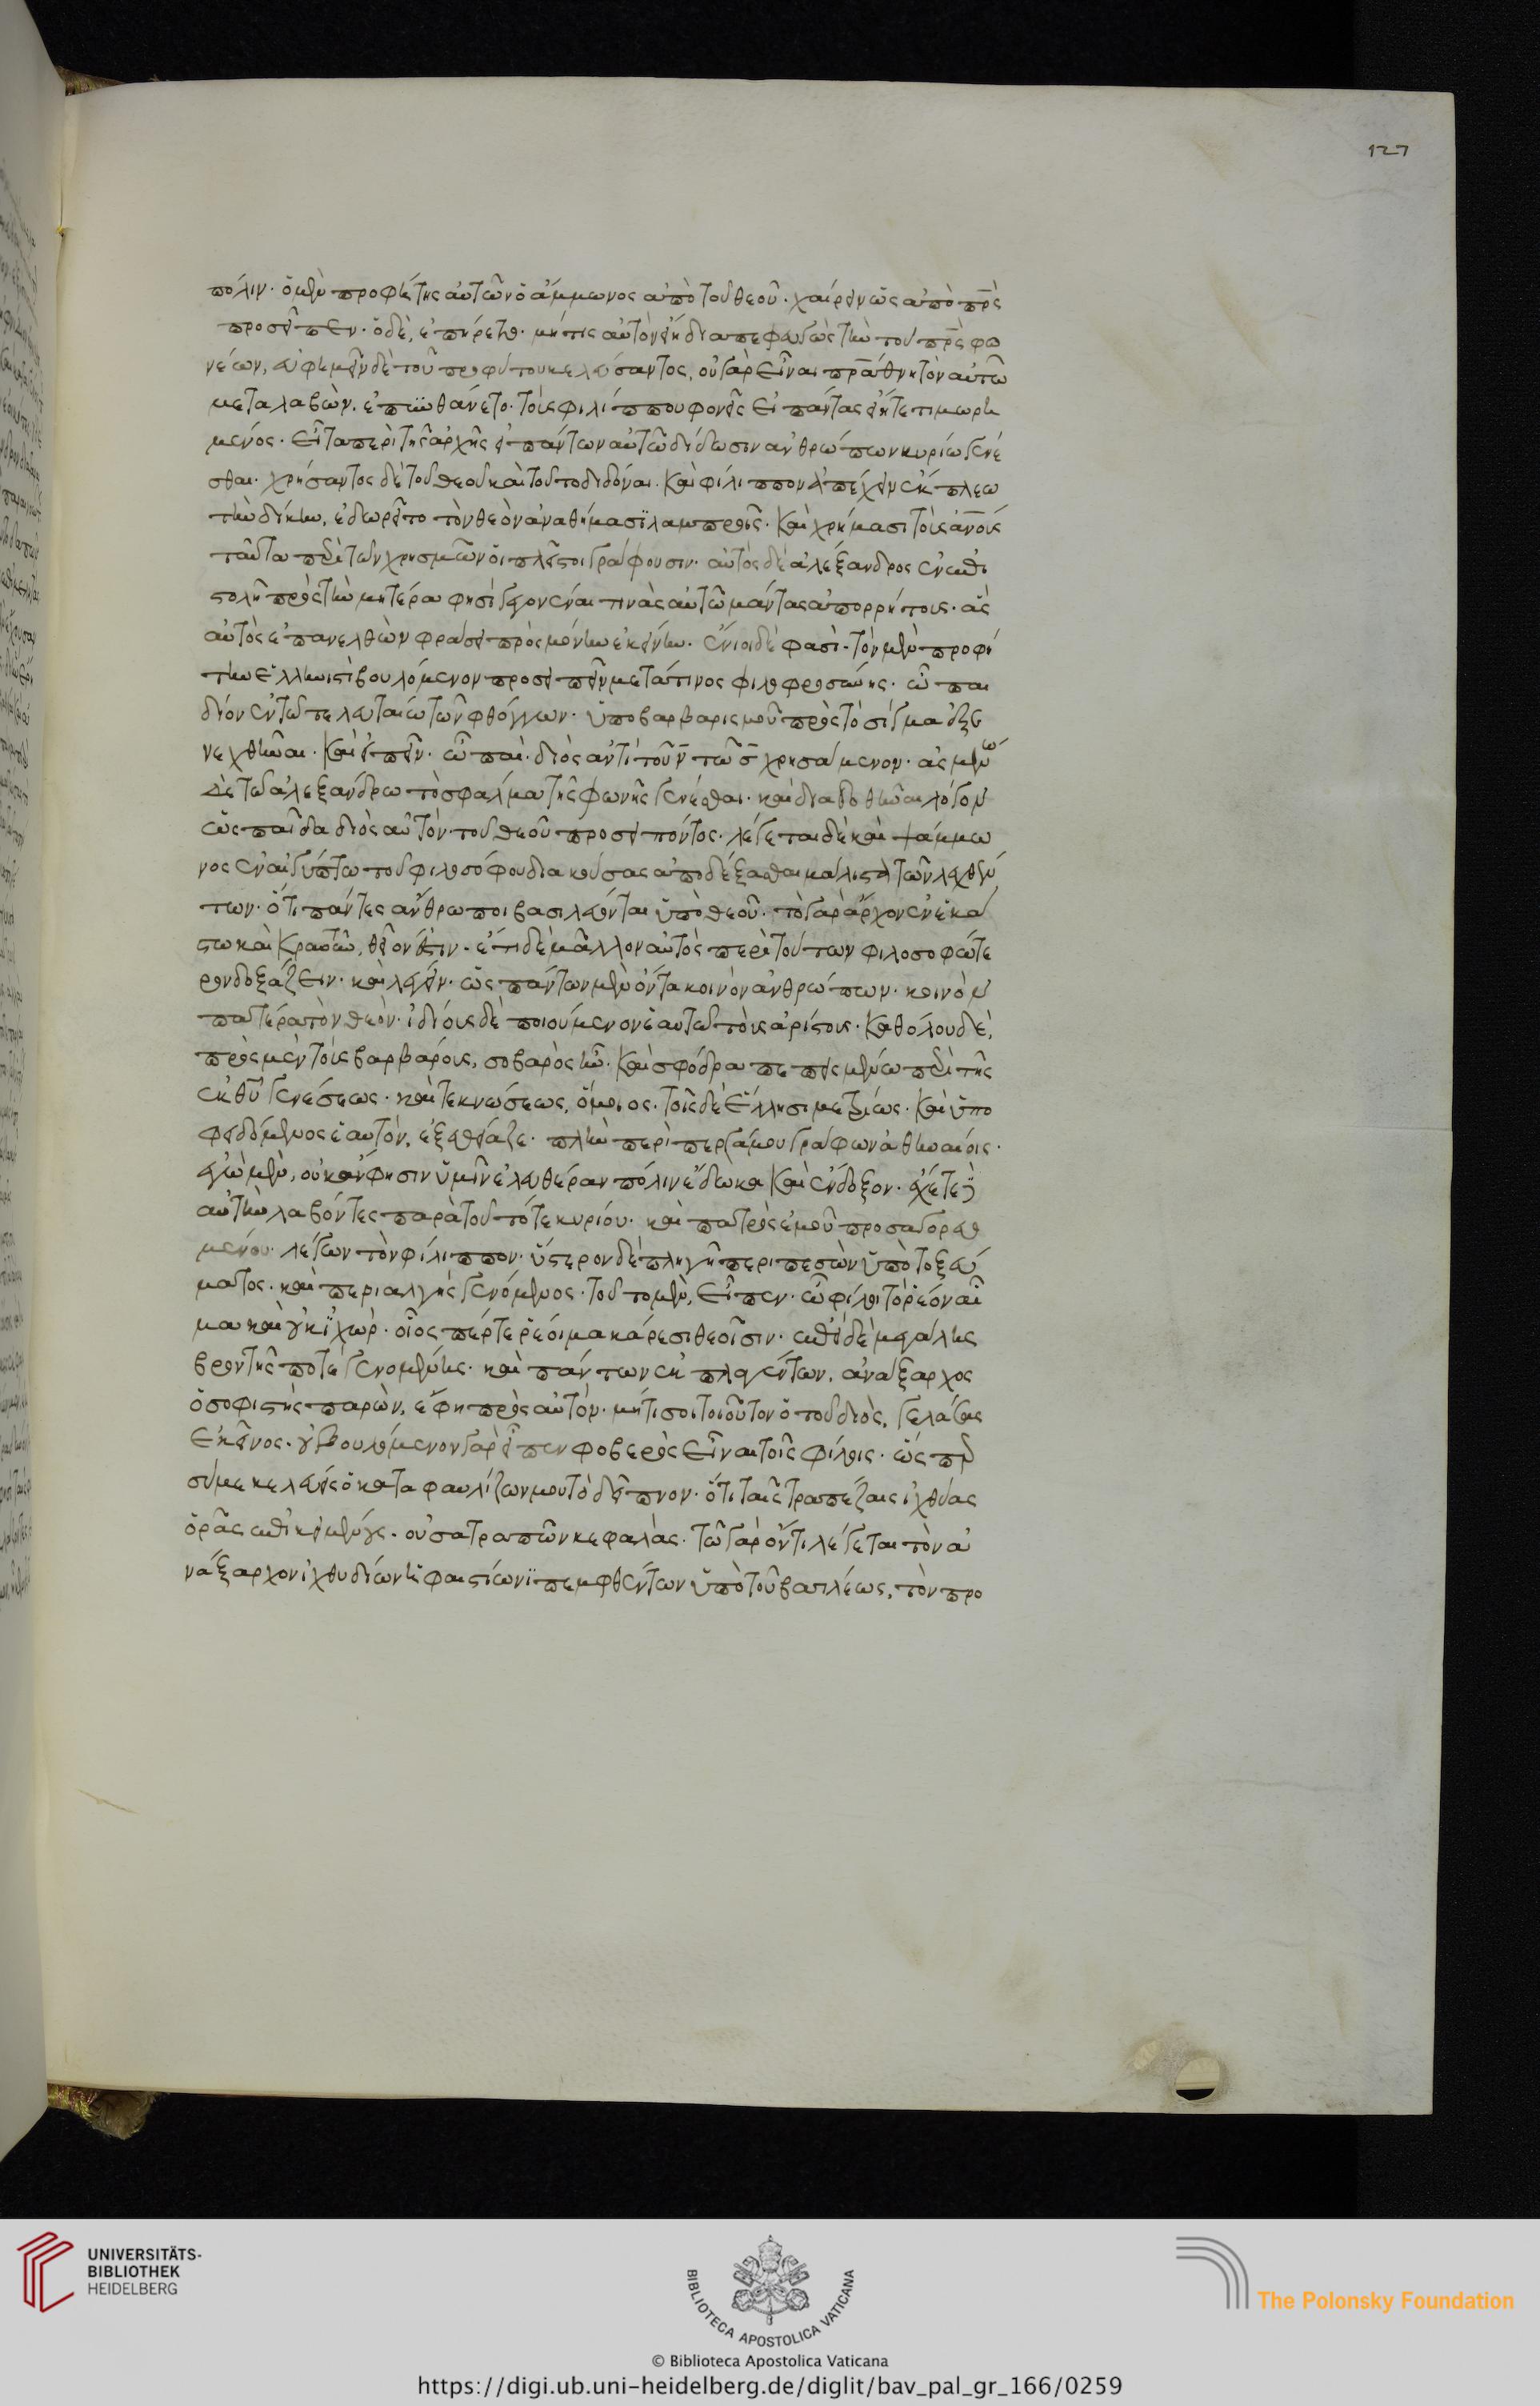 127
πόλιν· ὁ μὲν προφήτης αὐτῶν ὁ ἄμμωνος ἀπὸ τοῦ θεοῦ· χαίρειν ὡς ἀπὸ πρ̅ς
προσεῖπεν· ὁ δὲ, ἐπήρετο· μή τις αὐτὸν εἴη διαπεφευγὼς τὴν τοῦ πρ̅ς φο
νέων, εὐφημεῖν δὲ τοῦ προφήτου κελεύσαντος, οὐ γὰρ εἶναι πρ̅α θνητὸν αὐτῶ
μεταλαβὼν. ἐπυνθάνετο· τοὺς φιλίππου φονεῖς εἰ πάντας εἴη τετιμωρη
μένος· εἶτα περὶ τῆς ἀρχῆς εἰ πάντων αὐτῶ δίδωσιν ἀνθρώπων κυρίω γενέ
σθαι. χρήσαντος δὲ τοῦ θεοῦ καὶ τοῦτο διδόναι. καὶ φίλιππον ἀπέχειν ἔκπλεω
τὴν δίκην, ἐδωρεῖτο τὸν θεὸν ἀναθήμασι λαμπροῖς· καὶ χρήμασι τοὺς ἀν̅ους
ταῦτα περὶ τῶν χρησμῶν οἱ πλεῖστοι γράφουσιν· αὐτὸς δὲ ἀλέξανδρος ἐν ἐπι
στολῆ πρὸς τὴν μητέρα φησὶ γεγονέναι τινὰς αὐτῶ μαντείας ἀπορρήτους· ἃς
αὐτὸς ἐπανελθὼν φράσει πρὸς μόνην ἐκείνην. ἔνιοι δέ φασι· τὸν μὲν προφή
την ἑλληνιστὶ βουλόμενον προσειπεῖν μετά τινος φιλοφροσύνης· ὦ παι
δίον ἐν τῶ τελευταίω τῶν φθόγγων· ὑπὸ βαρβαρισμοῦ πρὸς τὸ σίγμα ἐξε
νεχθῆναι· καὶ εἰπεῖν· ὦ παῖ διὸς ἀντὶ τοῦ ν̅ τῶ σ̅ χρησάμενον· ἀσμένω
δὲ τῶ ἀλεξάνδρω τὸ σφάλμα τῆς φωνῆς γενέσθαι· καὶ διαδοθῆναι λόγον
ὡς παῖδα διὸς αὐτὸν τοῦ θεοῦ προσειπόντος. λέγεται δὲ καὶ ψάμμω
νος ἐν αἰγύπτω τοῦ φιλοσόφου διακούσας ἀποδέξασθαι μάλιστα τῶν λεχθέν
των· ὅτι πάντες ἄνθρωποι βασιλεύονται ὑπὸ θεοῦ. τὸ γὰρ ἄρχον ἐν ἑκά
στω καὶ κρατοῦν, θεῖόν ἐστιν· ἔτι δὲ μᾶλλον αὐτὸς περὶ τούτων φιλοσοφώτε
ρον δοξάζειν· καὶ λέγειν· ὡς πάντων μὲν ὄντα κοινὸν ἀνθρώπων· κοινὸν
πατέρα τὸν θεόν· ἰδίους δὲ ποιούμενον ἑαυτῶ τοὺς ἀρίστους. καθόλου δὲ,
πρὸς μὲν τοὺς βαρβάρους, σοβαρὸς ἦν· καὶ σφόδρα πεπεισμένω περὶ τῆς
ἐκ θ̅υ γενέσεως· καὶ τεκνώσεως, ὅμοιος. τοῖς δὲ ἕλλησι μετρίως· καὶ ὑπο
φειδόμενος ἑαυτὸν, ἐξεθείαζε· πλὴν περὶ περγάμου γράφων ἀθηναίοις·
ἐγὼ μὲν, οὐκ ἄν φησιν ὑμῖν ἐλευθέραν πόλιν ἔδωκα καὶ ἔνδοξον· ἔχετε δὲ
αὐτὴν λαβόντες παρὰ τοῦ τότε κυρίου· καὶ πατρὸς ἐμοῦ προσαγορευο
μένου· λέγων τὸν φίλιππον· ὕστερον δὲ πληγῆ περιπεσὼν ὑπὸ τοξεύ
ματος· καὶ περιαλγὴς γενόμενος· τοῦτο μὲν, εἶπεν· ὦ φίλοι τὸ ῥέον αἷ
μα καὶ οὐκ ἰχὼρ· οἷος πέρ τε ῥέει μακάρεσι θεοῖσιν· ἐπεὶ δὲ μεγάλης
βροντῆς ποτὲ γενομένης· καὶ πάντων ἐκπλαγέντων, ἀνάξαρχος
ὁ σοφιστὴς παρὼν, ἔφη πρὸς αὐτόν· μήτι σοι τοιοῦτον ὁ τοῦ διὸς, γελάσας
ἐκεῖνος· οὐ βούλομαι γὰρ εἶπεν φοβερὸς εἶναι τοῖς φίλοις· ὥσπερ
σύ με κελεύεις ὁ καταφαυλίζων μου τὸ δεῖπνον· ὅτι ταῖς τραπέζαις ἰχθύας
ὁρᾶς ἐπικειμένους· οὐ σατραπῶν κεφαλάς. τῶ γὰρ ὄντι λέγεται τὸν ἀ
νάξαρχον ἰχθυδίων ἡφαιστίωνι πεμφθέντων ὑπὸ τοῦ βασιλέως, τὸν προ
UNIVERSITÄTS-
BIBLIOTHEK
HEIDELBERG
BIBLIOTECA APOSTOLICA VATICANA
The Polonsky Foundation
© Biblioteca Apostolica Vaticana
https://digi.ub.uni-heidelberg.de/diglit/bav_pal_gr_166/0259